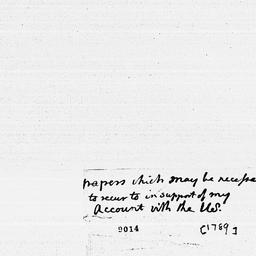 papers which may be necessa
to recur to in support of my
Account with the US.
9014 [1789]